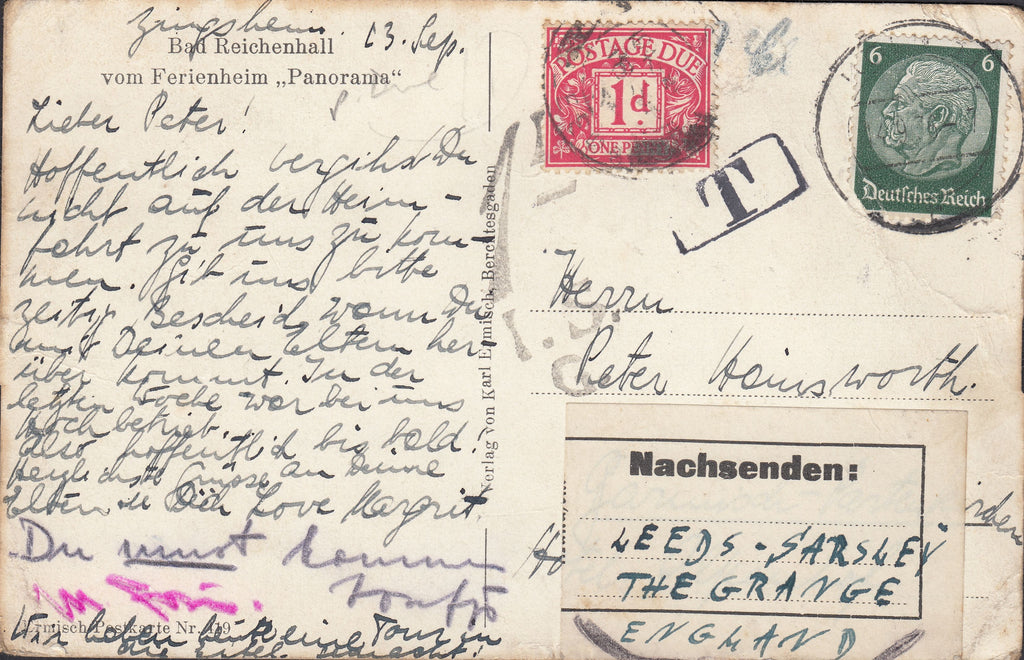 Zingsheim. 13. Sep.
Bad Reichenhall
vom Ferienheim „Panorama“
Lieber Peter!
Hoffentlich vergihst Du
nicht auf der Heim-
fahrt zu uns zu kom-
men. Gib uns bitte
zeitig Bescheid, wann Du
mit Deinen Eltern her-
über kommt. In der
letzten Woche war bei uns
hochbetrieb.
Also hoffentlich bis bald!
Herzlichste Grüsse an Deine
Eltern u. Dich Love Margrit.
Du musst kommen
Wir haben heute eine Tour in
die Eifel gemacht!
Ermisch-Postkarte Nr. 419
Verlag von Karl Ermisch, Berchtesgaden
POSTAGE DUE
1d.
ONE PENNY
T
6 6
Deutsches Reich
Herrn
Peter Hainsworth.
Nachsenden:
LEEDS - FARSLEY
THE GRANGE
ENGLAND